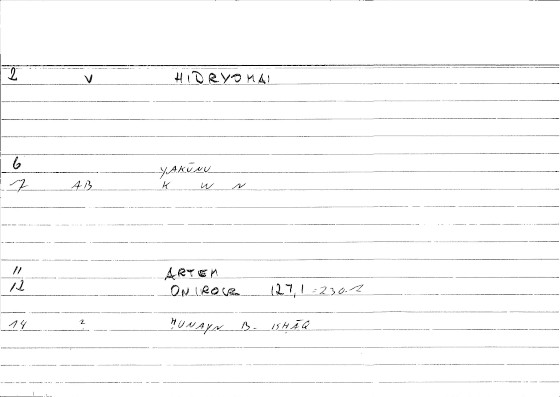 2 V HIDRYOMAI
6 YAKŪNU
7 AB K W N
11 ARTEM
12 ONIROCR 127,1 = 230.12
14 2 ḤUNAYN B. ISḤĀQ